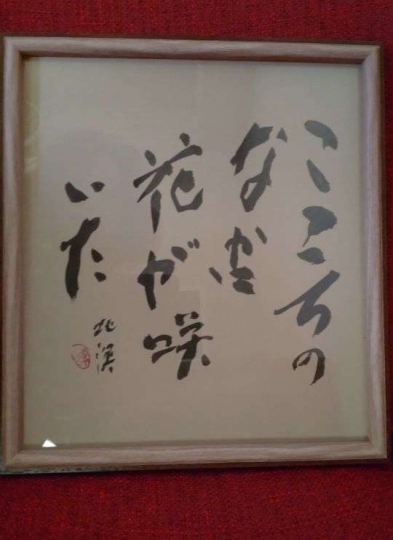 こころの
なかに
花が咲
いた